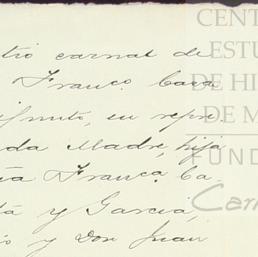 tio carnal de
Franco. Cara
difunto, en repre
da Madre, hija
ña Franca. Ca
tá y García,
io y Don Juan
CENT
ESTU
DE HI
DE M
FUND
Car